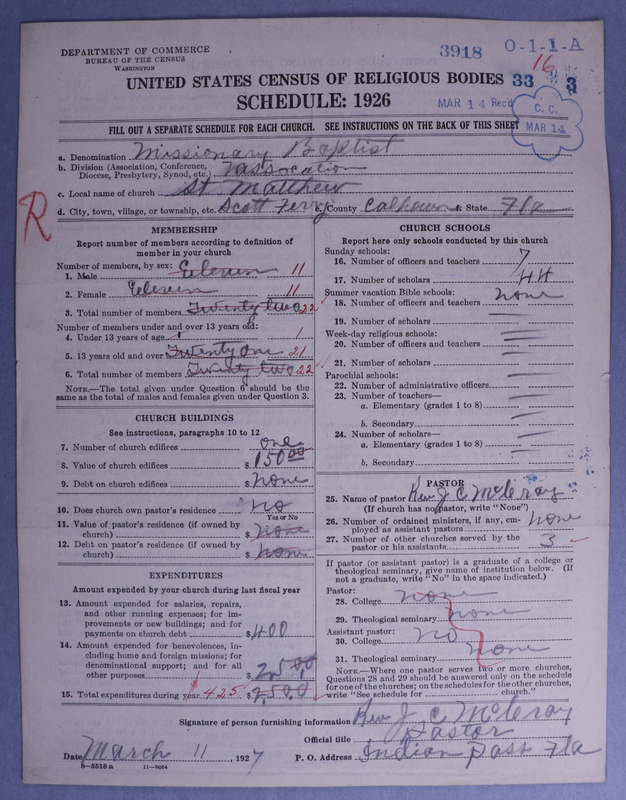 DEPARTMENT OF COMMERCE
BUREAU OF THE CENSUS
WASHINGTON
3918 O-1-1-A
16
UNITED STATES CENSUS OF RELIGIOUS BODIES 33 3
SCHEDULE: 1926
MAR 14 Rec'd
C. C.
MAR 14
FILL OUT A SEPARATE SCHEDULE FOR EACH CHURCH. SEE INSTRUCTIONS ON THE BACK OF THIS SHEET
a. Denomination Missionary Baptist
b. Division (Association, Conference,
Diocese, Presbytery, Synod, etc.)
c. Local name of church St Matthew
d. City, town, village, or township, etc. Scott Ferry e. County Calhoun f. State Fla
R
MEMBERSHIP
Report number of members according to definition of
member in your church
Number of members, by sex:
1. Male Eleven 11
2. Female Eleven 11
3. Total number of members Twenty two 22
Number of members under and over 13 years old:
4. Under 13 years of age 1 1
5. 13 years old and over Twenty one 21
6. Total number of members Twenty two 22
NOTE.—The total given under Question 6 should be the
same as the total of males and females given under Question 3.
CHURCH BUILDINGS
See instructions, paragraphs 10 to 12
7. Number of church edifices one
8. Value of church edifices $ 150 00
9. Debt on church edifices $ None
10. Does church own pastor's residence no
Yes or No
11. Value of pastor's residence (if owned by
church) $ None
12. Debt on pastor's residence (if owned by
church) $ None
EXPENDITURES
Amount expended by your church during last fiscal year
13. Amount expended for salaries, repairs,
and other running expenses; for im-
provements or new buildings; and for
payments on church debt $ 400
14. Amount expended for benevolences, in-
cluding home and foreign missions; for
denominational support; and for all
other purposes $ 25.00
15. Total expenditures during year 425 $ 25.00
CHURCH SCHOOLS
Report here only schools conducted by this church
Sunday schools:
16. Number of officers and teachers 7
17. Number of scholars 44
Summer vacation Bible schools:
18. Number of officers and teachers none
19. Number of scholars
Week-day religious schools:
20. Number of officers and teachers
21. Number of scholars
Parochial schools:
22. Number of administrative officers
23. Number of teachers—
a. Elementary (grades 1 to 8)
b. Secondary
24. Number of scholars—
a. Elementary (grades 1 to 8)
b. Secondary
PASTOR
25. Name of pastor Rev J. C. McCleroy
(If church has no pastor, write "None")
26. Number of ordained ministers, if any, em-
ployed as assistant pastors none
27. Number of other churches served by the
pastor or his assistants 3
If pastor (or assistant pastor) is a graduate of a college or
theological seminary, give name of institution below. (If
not a graduate, write "No" in the space indicated.)
Pastor:
28. College none
29. Theological seminary none
Assistant pastor:
30. College No
31. Theological seminary none
NOTE.—Where one pastor serves two or more churches,
Questions 28 and 29 should be answered only on the schedule
for one of the churches; on the schedules for the other churches,
write "See schedule for church."
Signature of person furnishing information Rev J C McCleroy
Official title Pastor
Date March 11, 1927 P. O. Address Indian Pass Fla
8-5518a 11-9054